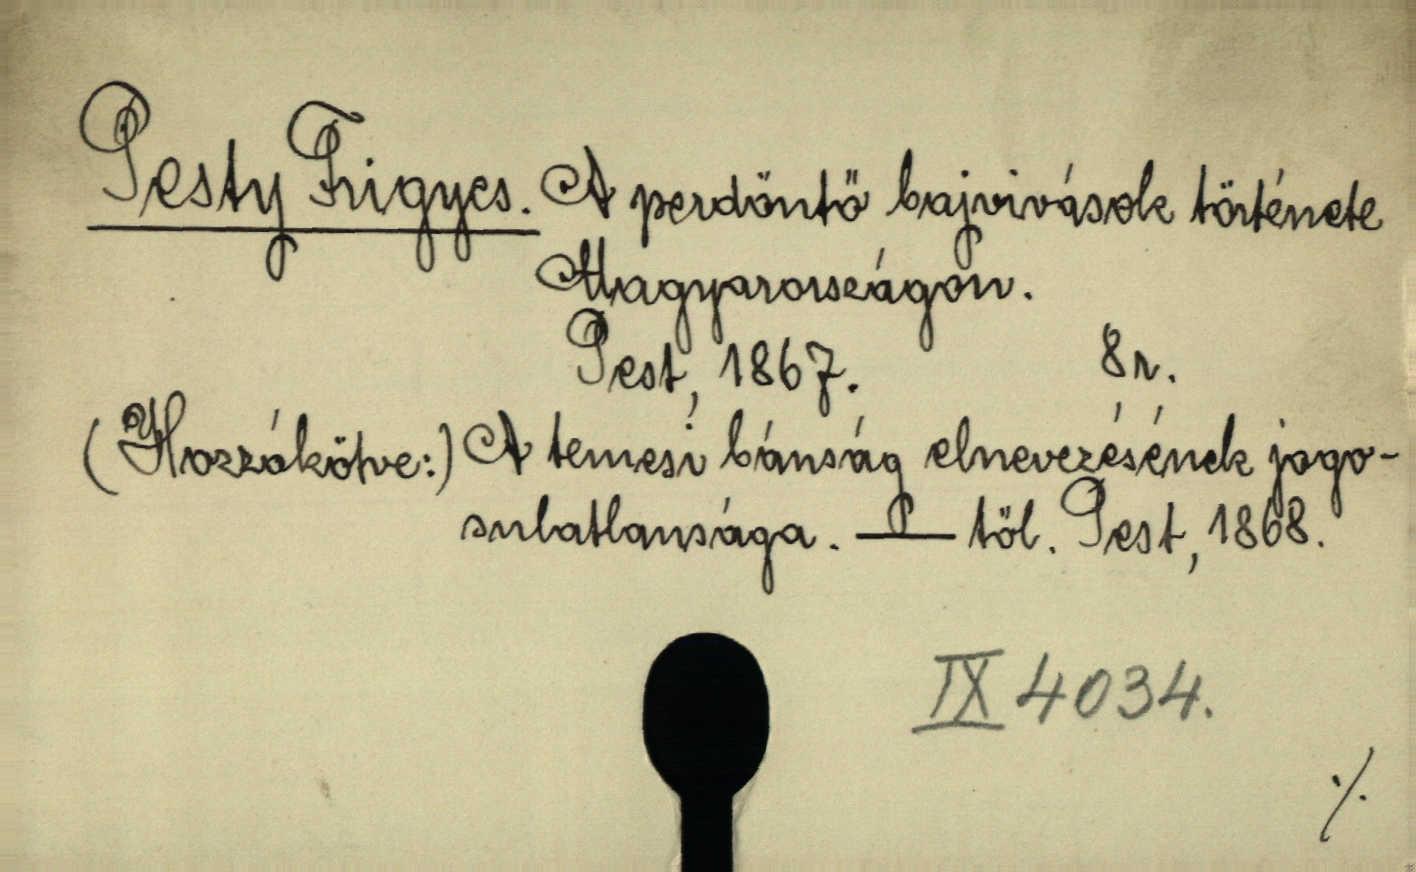 Pesty Frigyes. A perdöntő bajvivások története
Magyarországon.
Pest, 1867. 8r.
(Hozzákötve:) A temesi bánság elnevezésének jogo-
sulatlansága. — től. Pest, 1868.
IX 4034.
./.